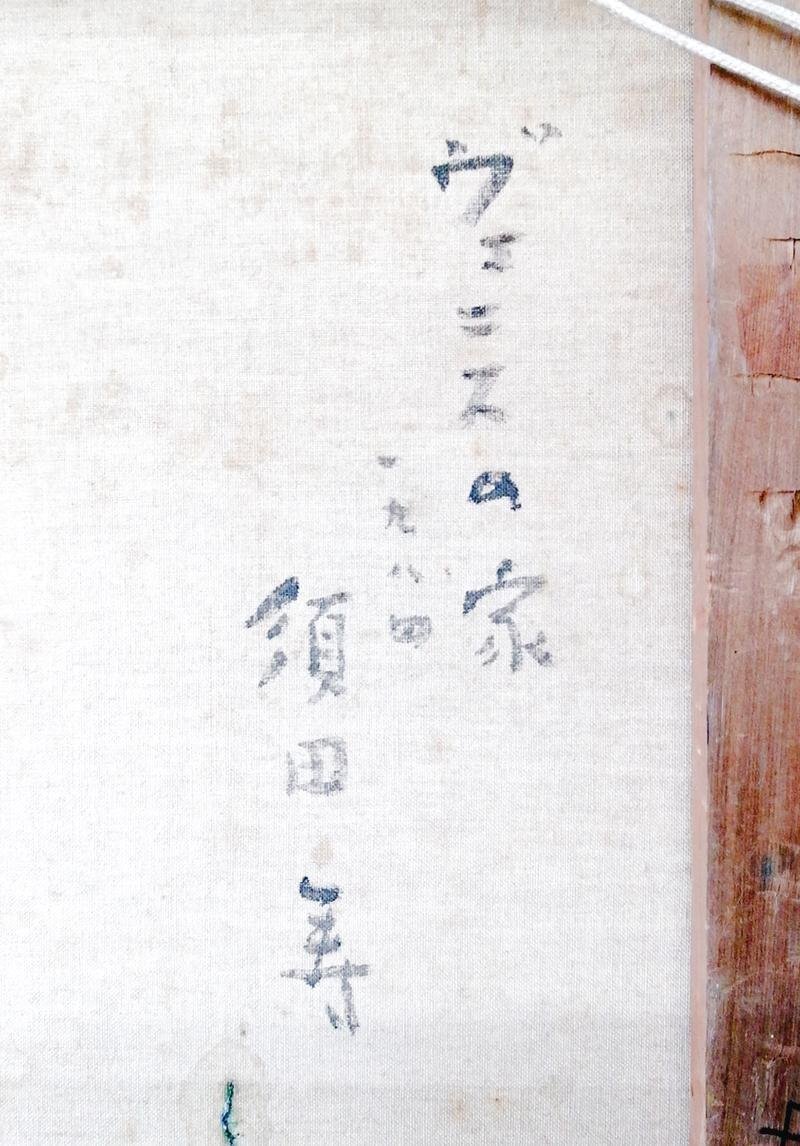 ヴェニスの家
一九八四
須田寿